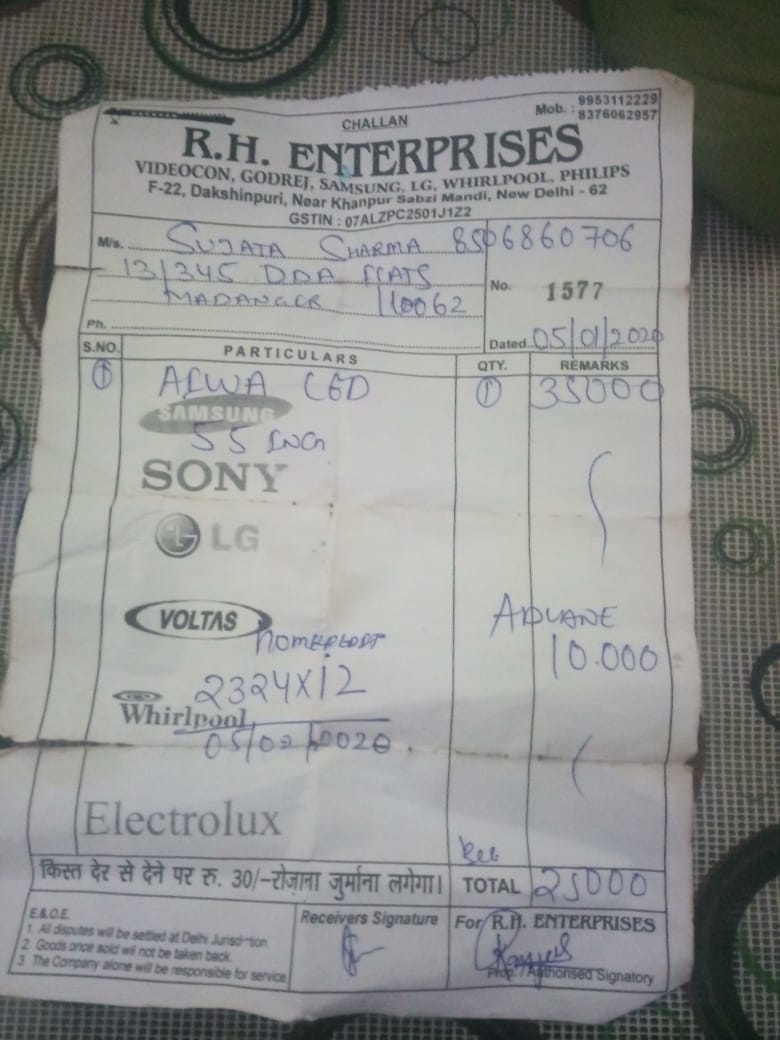 CHALLAN
Mob. : 9953112229
8376062957
R.H. ENTERPRISES
VIDEOCON, GODREJ, SAMSUNG, LG, WHIRLPOOL, PHILIPS
F-22, Dakshinpuri, Near Khanpur Sabzi Mandi, New Delhi - 62
GSTIN : 07ALZPC2501J1Z2
M/s. SUJATA SHARMA 8506860706
13/345 DDA FLATS
MADANGER 110062
No. 1577
Ph.
Dated 05/01/2020
S.NO. PARTICULARS QTY. REMARKS
1 AIWA LED 1 35000
SAMSUNG
55 INCH
SONY
LG
ADVANE
VOLTAS
10.000
2324X12
Whirlpool
05/02/2020
Electrolux
किस्त देर से देने पर रु. 30/-रोज़ाना जुर्माना लगेगा। TOTAL 25000
E.&.O.E.
1. All disputes will be settled at Delhi Junsdction
2. Goods once sold wil not be taken back.
3. The Company alone will be responsible for service
Receivers Signature
For R.H. ENTERPRISES
Prop. / Authorised Signatory